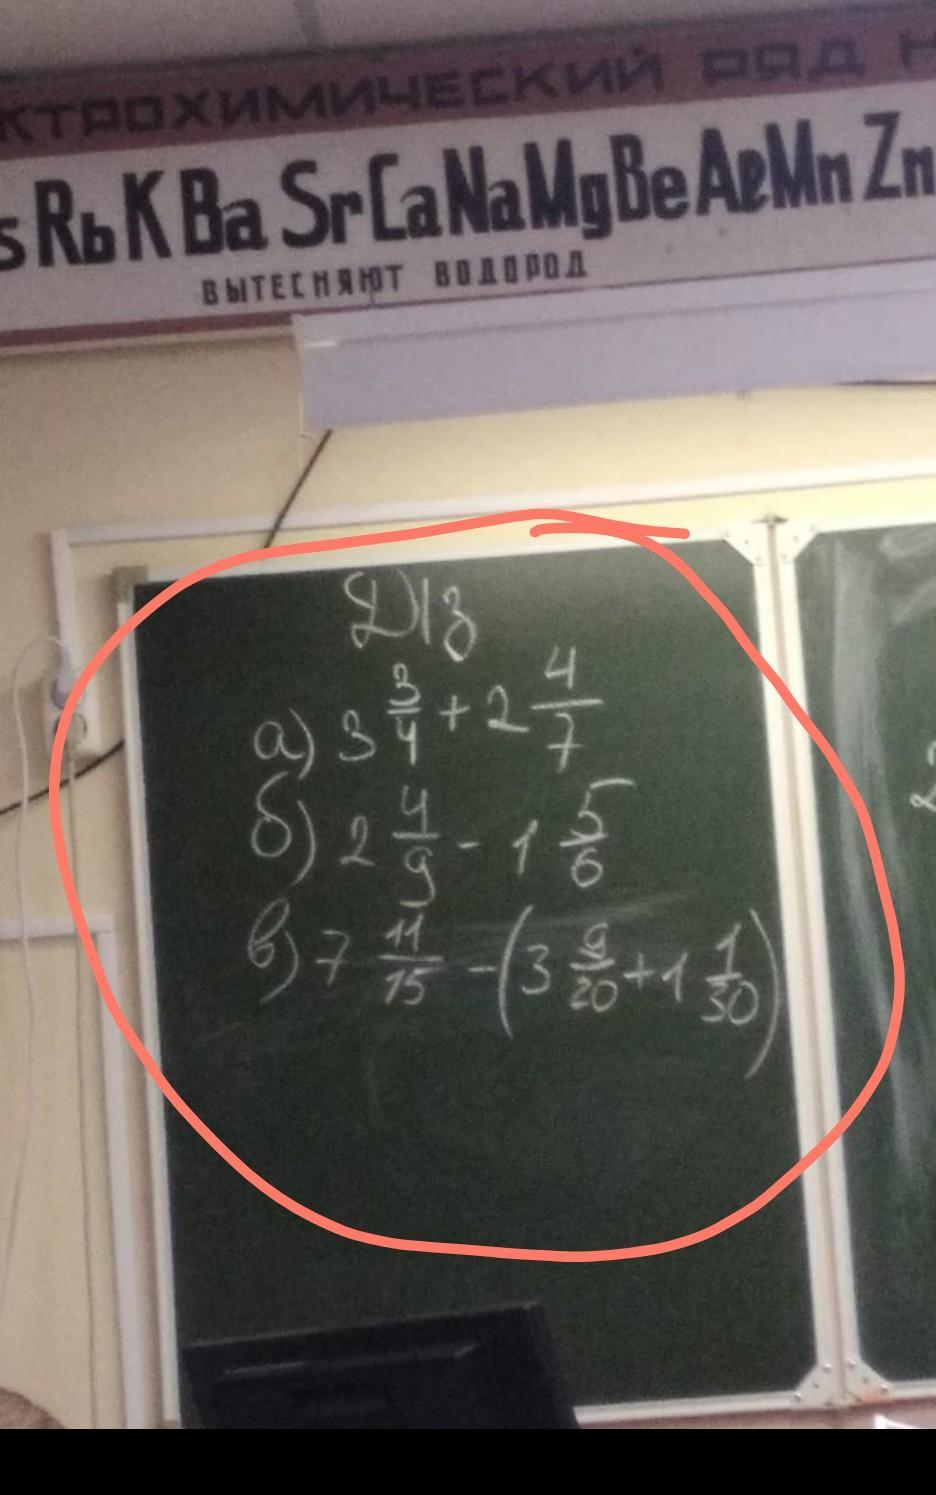 КТРОХИМИЧЕСКИЙ РЯД Н
s Rb K Ba Sr Ca Na Mg Be Al Mn Zn
ВЫТЕСНЯЮТ ВОДОРОД
Д/з
а) 3 3/4 + 2 4/7
б) 2 4/9 - 1 5/6
в) 7 11/15 - (3 9/20 + 1 1/30)
2